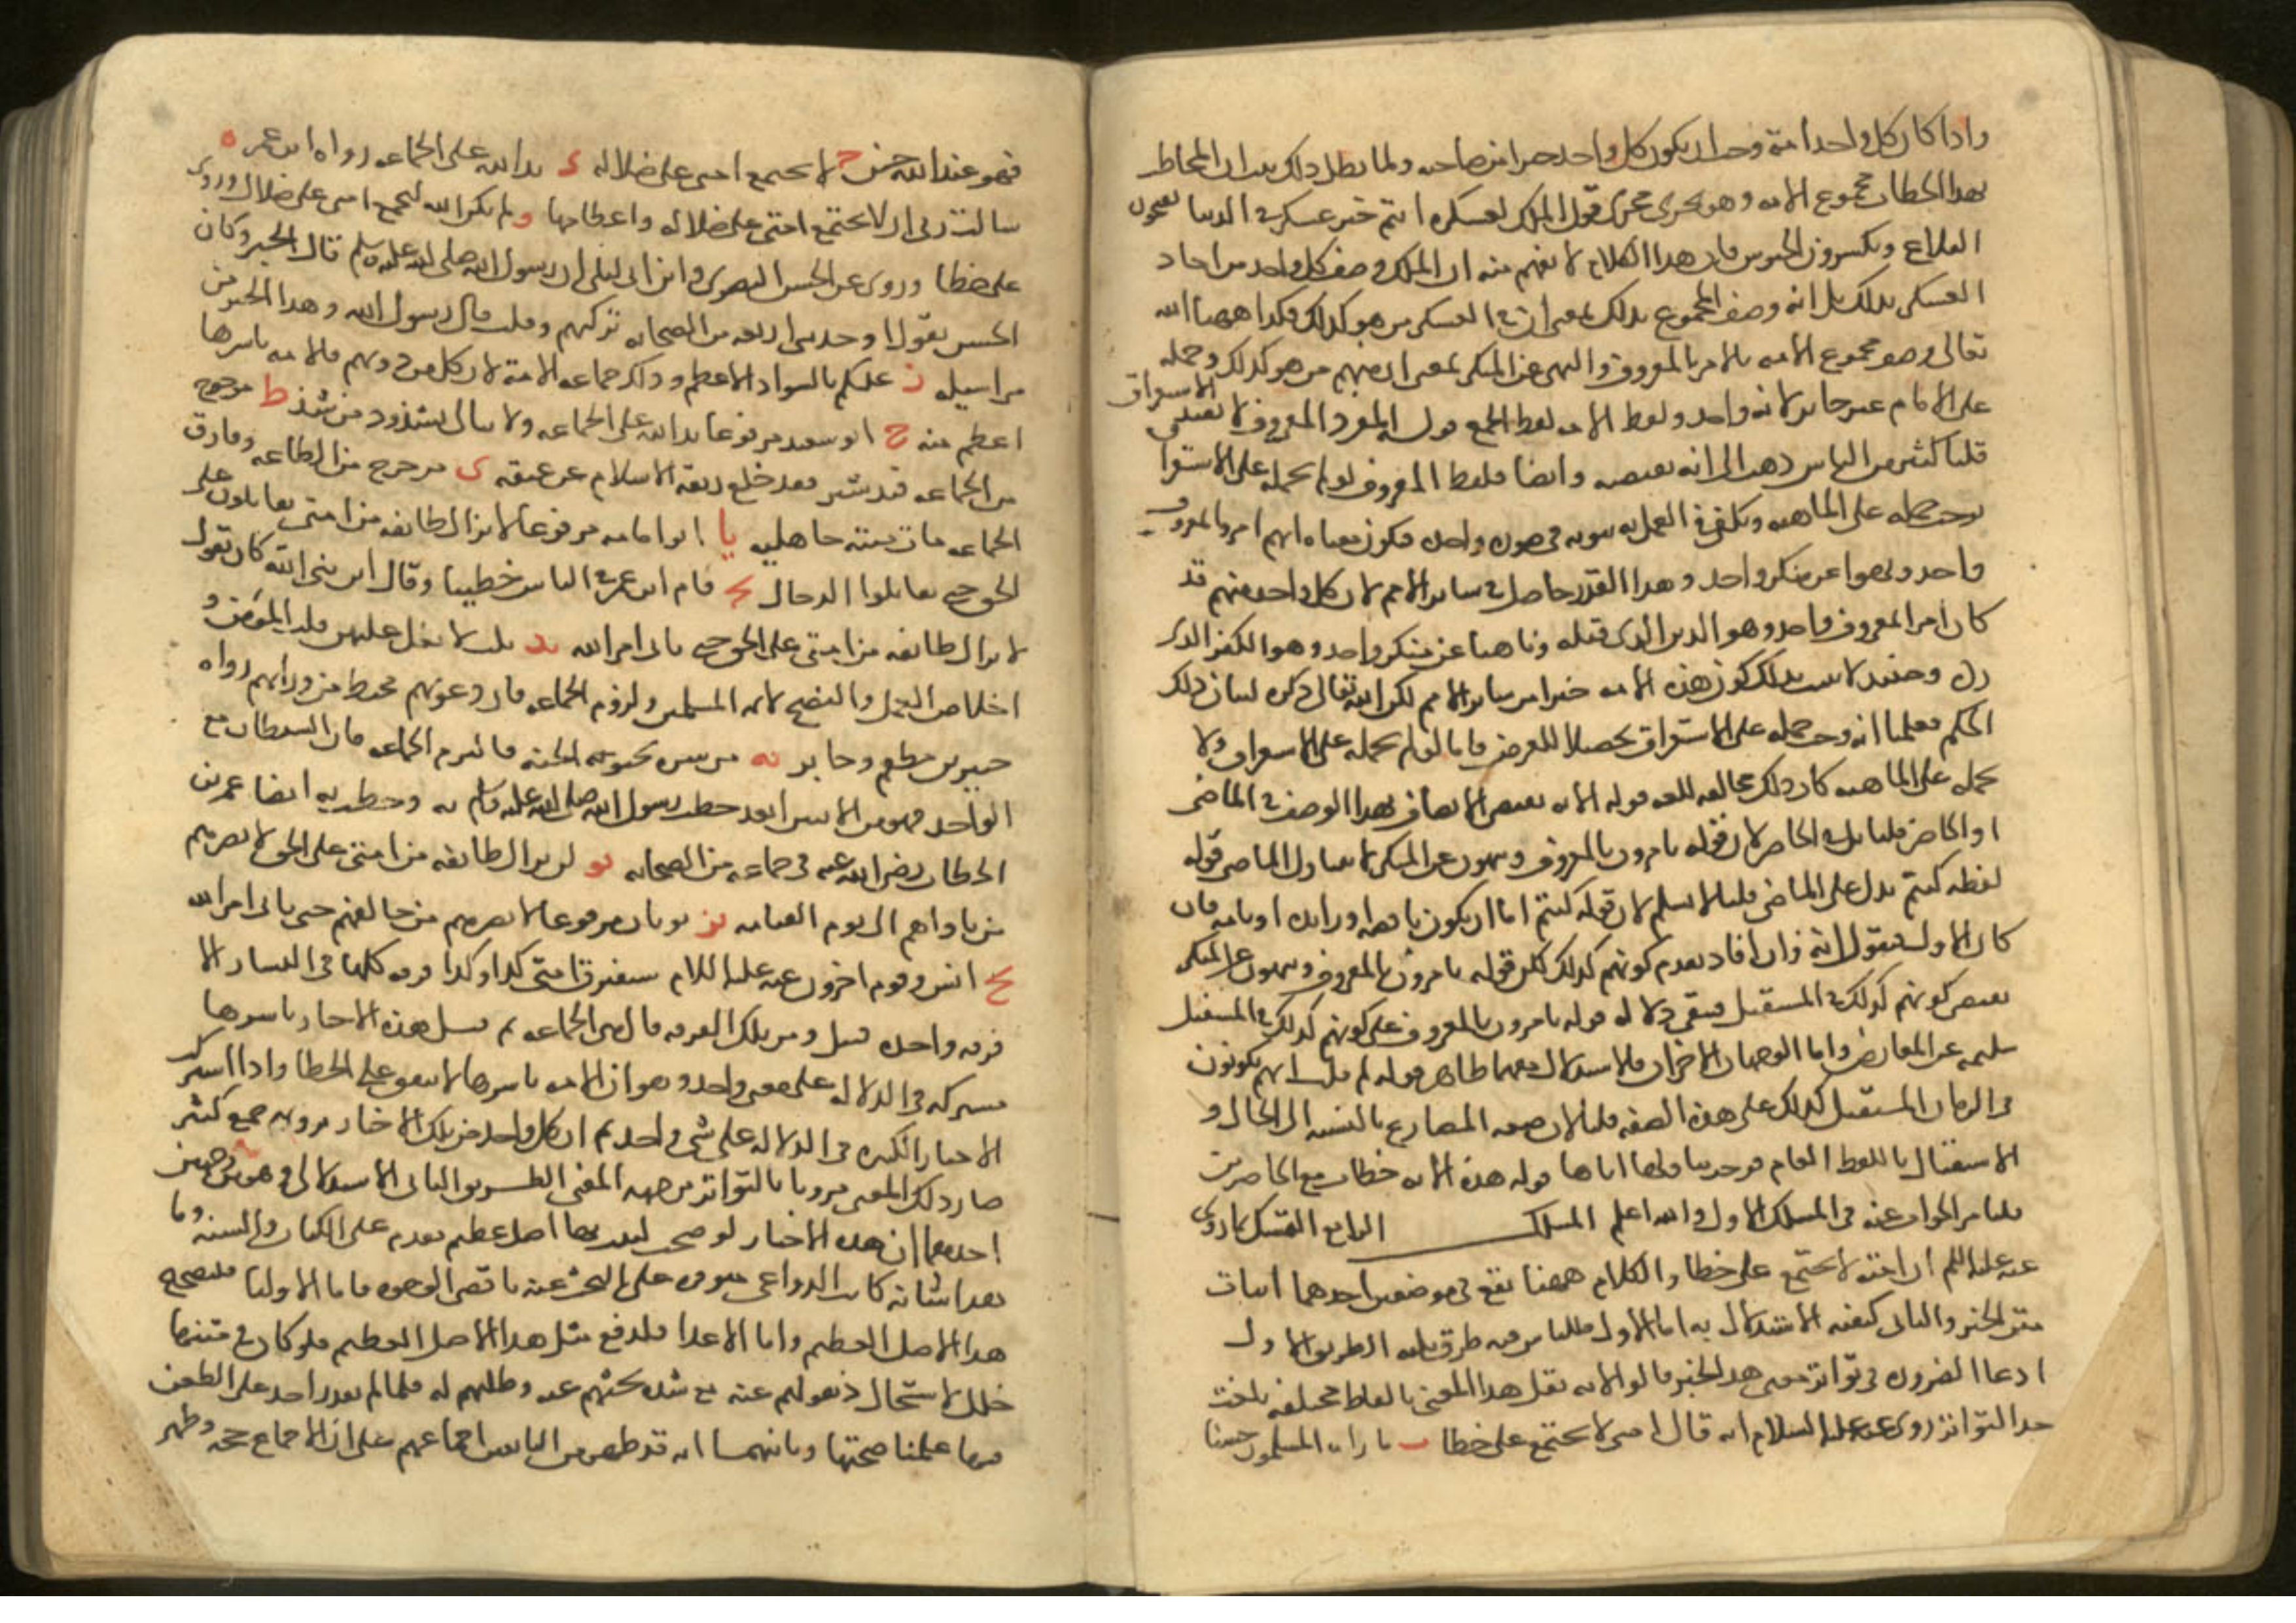 واذا كان كل واحد امة وجب ان يكون كل واحد خيرا من صاحبه ولما بطل ذلك ثبت ان المخاطب
بهذا الخطاب مجموع الامه وهو يجرى مجرى قول الملك لعسكره انتم خير عسكر في الدنيا تفتحون
القلاع وتكسرون الجيوش فان هذا الكلام لا يفهم منه ان الملك وصف كل واحد من احاد
العسكر بذلك بل انه وصف المجموع بذلك بمعنى ان في العسكر من هو كذلك فكذا ههنا الله
تعالى وصف مجموع الامه بالامر بالمعروف والنهى عن المنكر بمعنى ان منهم من هو كذلك وحمله
على الامام غير جايز لانه واحد ولفظ الامه لفظ الجمع قوله المفرد المعرف لا يقتضى الاستغراق
قلنا كثير من الناس ذهب الى انه يقتضيه وايضا فلفظ المعروف لو لم يحمل على الاستغراق
لوجب حمله على الماهيه ويكفى في العمل به ثبوته في صورة واحده فيكون معناه انهم امروا بمعروف
واحد ونهوا عن منكر واحد وهذا القدر حاصل في ساير الامم لان كل واحد منهم قد
كان امر بمعروف واحد وهو الدين الذى قبله وناهيا عن منكر واحد وهو الكفر الذى
رده وحينئذ لا يثبت بذلك كون هذه الامه خيرا من ساير الامم لكن الله تعالى ذكره لبيان ذلك
الحكم فعلمنا انه وجب حمله على الاستغراق تحصيلا للغرض فاما لو لم يحمله على الاستغراق ولا
يحمله على الماهيه كان ذلك مخالفه للغه قوله الايه تقتضى الاتصاف بهذا الوصف في الماضى
او الحاضر قلنا بل في الحاضر لان قوله تامرون بالمعروف وتنهون عن المنكر لا يتناول الماضى قوله
لفظه كنتم تدل على الماضى قلنا لا نسلم لان قوله كنتم اما ان يكون ناقصه او زايده او تامه فان
كان الاول فنقول انه وان افاد تقدم كونهم كذلك لكن قوله تامرون بالمعروف وتنهون عن المنكر
يقتضى كونهم كذلك في المستقبل فيبقى دلاله قوله تامرون بالمعروف على كونهم كذلك في المستقبل
سليمه عن المعارض واما الوجهان الاخران فالاستدلال معهما ظاهر قوله لم قلت انهم يكونون
في الزمان المستقبل كذلك على هذه الصفه قلنا لان صيغه المضارع بالنسبه الى الحال و
الاستقبال كاللفظ العام فوجب تناولها اياها قوله هذه الايه خطاب مع الحاضرين
قلنا مر الجواب عنه في المسلك الاول والله اعلم المسلك الرابع التمسك بما روى
عنه عليه السلم ان امته لا تجتمع على خطا والكلام ههنا يقع في موضعين احدهما اثبات
متن الخبر والثانى كيفيه الاستدلال به اما الاول فللناس فيه طرق ثلثه الطريق الاول
ادعا الضروره في تواتر معنى هذا الخبر قالوا لانه نقل هذا المعنى بالفاظ مختلفه بلغت
حد التواتر ا روى عنه عليه السلام انه قال امتى لا تجتمع على خطا ب ما راه المسلمون حسنا
فهو عند الله حسن ج لا تجتمع امتى على ضلاله د يد الله على الجماعه رواه ابن عمر ه
سالت ربى ان لا تجتمع امتى على ضلاله واعطانيها و لم يكن الله ليجمع امتى على ضلال وروى
على خطا وروى عن الحسن البصرى وابن ابى ليلى ان رسول الله صلى الله عليه وسلم قال الخبر وكان
الحسن يقول اذا حدثنى اربعه من الصحابه تركتهم وقلت قال رسول الله وهذا الخبر من
مراسيله ز عليكم بالسواد الاعظم وذلك جماعه الامة لان كل من دونهم فالامه باسرها
اعظم منه ح ابو سعيد مرفوعا يد الله على الجماعه ولا يبالى بشذوذ من شذ ط من خرج
من الجماعه قيد شبر فقد خلع ربقة الاسلام عن عنقه ى من خرج من الطاعه وفارق
الجماعه مات ميتة جاهليه يا ابو امامه مرفوعا لا تزال طائفه من امتى يقاتلون على
الحق حتى يقاتلوا الدجال يب قام ابن عمر في الناس خطيبا وقال ان نبى الله كان يقول
لا تزال طائفه من امتى على الحق حتى ياتى امر الله يد ثلث لا يغل عليهن قلب المؤمن
اخلاص العمل والنصح لائمه المسلمين ولزوم الجماعه فان دعوتهم تحيط من ورائهم رواه
جبير بن مطعم وجابر يه من سره بحبوحة الجنه فليلزم الجماعه فان الشيطان مع
الواحد وهو من الاثنين ابعد خطب رسول الله صلى الله عليه وسلم به وخطب به ايضا عمر بن
الخطاب رضى الله عنه في جماعه من الصحابه يو لن تزال طائفه من امتى على الحق لا يضرهم
من ناواهم الى يوم القيامه يز ثوبان مرفوعا لا يضرهم من خالفهم حتى ياتى امر الله
يح انس وقوم اخرون عنه عليه السلام ستفترق امتى كذا وكذا فرقه كلها في النار الا
فرقه واحده قيل ومن تلك الفرقه قال هى الجماعه ثم قيل هذه الاخبار باسرها
مشتركه في الدلاله على معنى واحد وهو ان الامه باسرها لا تتفق على الخطا واذا اشتركت
الاخبار الكثيره في الدلاله على شى واحد ثم ان كل واحد من تلك الاخبار يرويه جمع كثير
صار ذلك المعنى مرويا بالتواتر من جهه المعنى الطريق الثانى الاستدلال وهو من وجهين
احدهما ان هذه الاخبار لو صحت لثبت بها اصل عظيم يقدم على الكتاب والسنه وما
هذا شانه كانت الدواعى متوفره على البحث عنه باقصى الوجوه فاما الاوليا فلتصحيح
هذا الاصل العظيم واما الاعدا فلدفع مثل هذا الاصل العظيم فلو كان في متنها
خلل لاستحال ذهولهم عنه مع شدة بحثهم عنه وطلبهم له فلما لم يقدر احد على الطعن
فيها علمنا صحتها وثانيهما انه قد ظهر من التابعين اجماعهم على ان الاجماع حجه وظهر